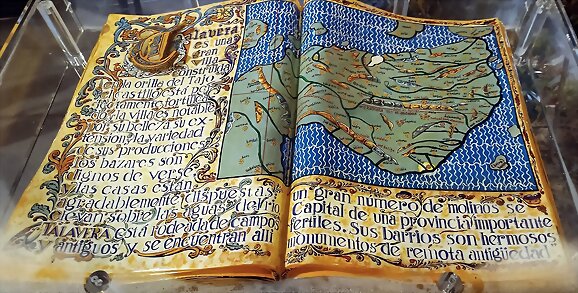 TALAVERA
es una
gran
villa
construida
a la orilla del Tajo
el castillo en otro
tiempo fortifi
cado. la villa es notable
por su belleza, su ex
tensión y la variedad
de sus producciones
los bazares son
dignos de verse
y las casas están
agradablemente dispuestas
elevan sobre las aguas del río
TALAVERA está rodeada de campos
y antiguos y se encuentran allí
un gran número de molinos se
capital de una provincia importante
fértiles. Sus barrios son hermosos
monumentos de remota antigüedad